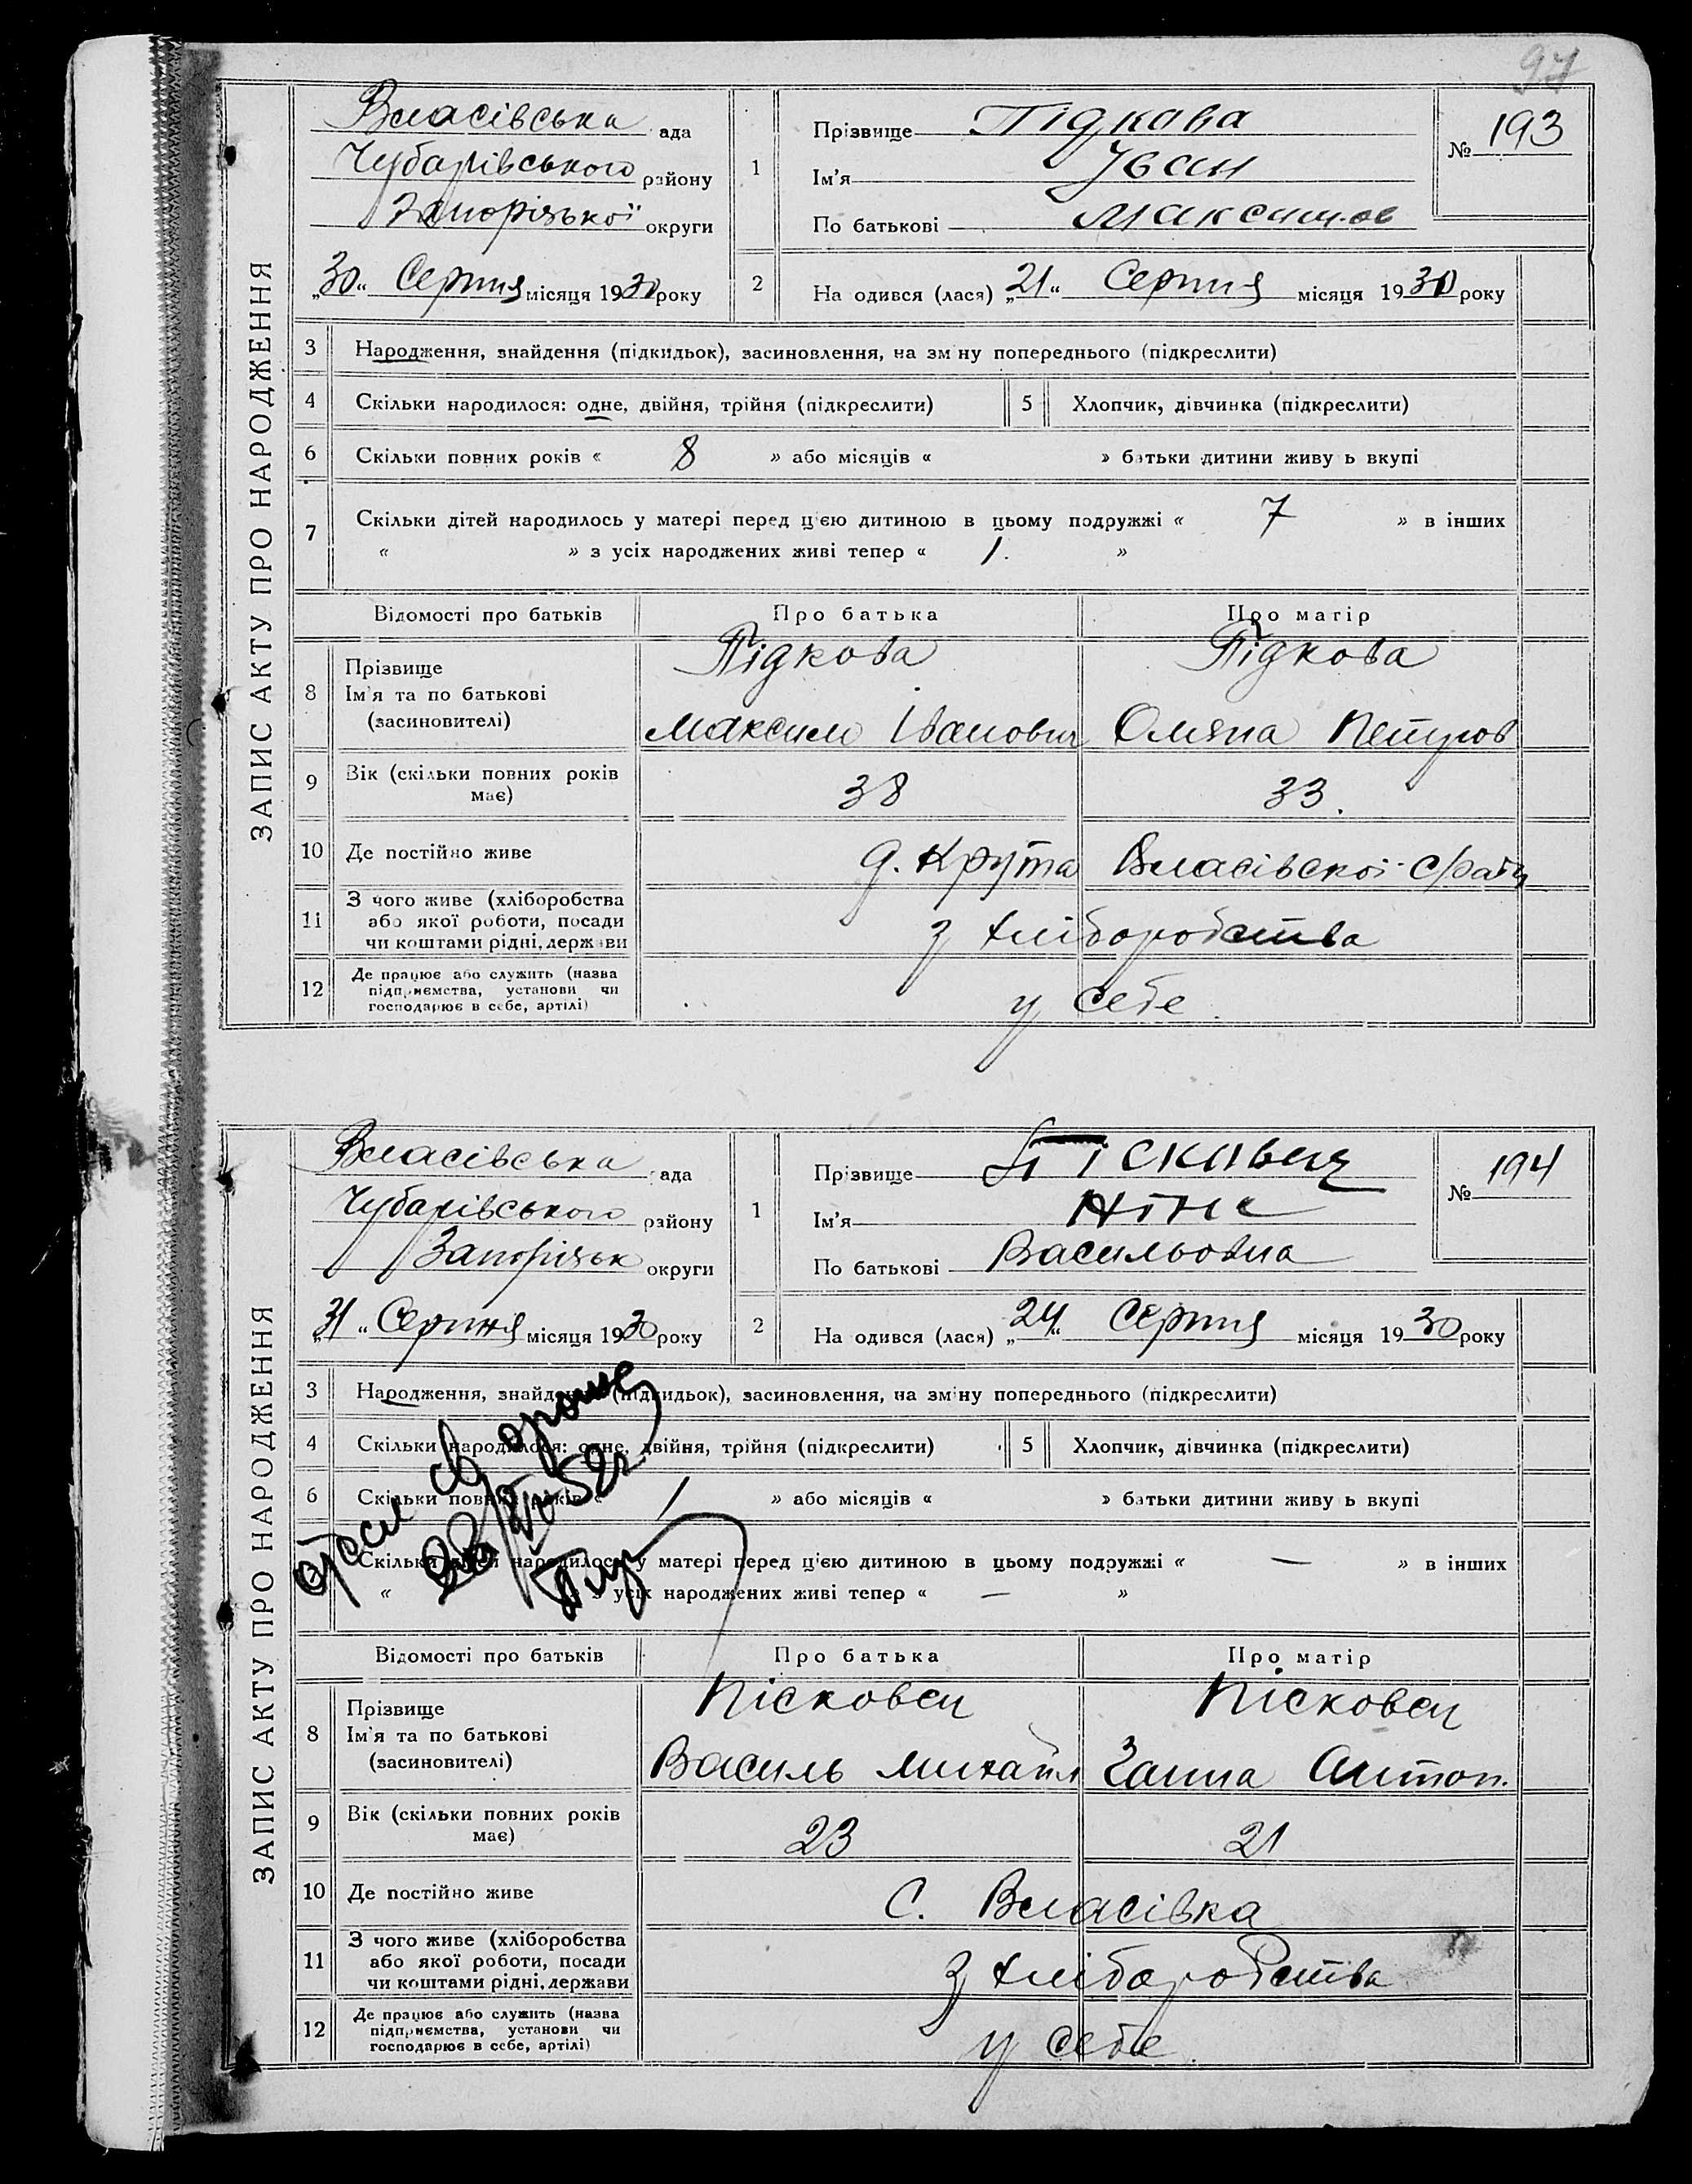 97
ЗАПИС АКТУ ПРО НАРОДЖЕННЯ
Власівська ада
Чубарівського району
Запорізької округи
„30“ Серпня місяця 1930 року
1
Прізвище Підкова
Ім'я Іван
По батькові Максимов
№ 193
2
На одився (лася) „21“ Серпня місяця 1930 року
3 Народження, знайдення (підкидьок), засиновлення, на зм ну попереднього (підкреслити)
4 Скільки народилося: одне, двійня, трійня (підкреслити) 5 Хлопчик, дівчинка (підкреслити)
6 Скільки повних років « 8 » або місяців « » батьки дитини живу ь вкупі
7 Скільки дітей народилось у матері перед ц'єю дитиною в цьому подружжі « 7 » в інших
« » з усіх народжених живі тепер « 1. »
Відомості про батьків Про батька Про матір
8 Прізвище Підкова Підкова
Ім'я та по батькові
(засиновителі) Максим Іванович Оляна Петров
9 Вік (скільки повних років
має) 38 33.
10 Де постійно живе д. Крута Власівскої с/ради
11 З чого живе (хліборобства
або якої роботи, посади
чи коштами рідні, держави з хліборобства
12 Де працює або служить (назва
підприємства, установи чи
господарює в себе, артілі) у себе.
ЗАПИС АКТУ ПРО НАРОДЖЕННЯ
Власівська ада
Чубарівського району
Запорізьк округи
„31“ Серпня місяця 1930 року
1
Прізвище Пісковец
Ім'я Ніна
По батькові Васильовна
№ 194
2
На одився (лася) „24“ Серпня місяця 1930 року
3 Народження, знайдення (підкидьок), засиновлення, на зміну попереднього (підкреслити)
4 Скільки народилося: одне, двійня, трійня (підкреслити) 5 Хлопчик, дівчинка (підкреслити)
6 Скільки повних років « 1 » або місяців « » батьки дитини живу ь вкупі
Скільки дітей народилось у матері перед ц'єю дитиною в цьому подружжі « — » в інших
« з усіх народжених живі тепер « — »
Відомості про батьків Про батька Про матір
8 Прізвище Пісковец Пісковец
Ім'я та по батькові
(засиновителі) Василь Михайл Ганна Антон.
9 Вік (скільки повних років
має) 23 21
10 Де постійно живе С. Власівка
11 З чого живе (хліборобства
або якої роботи, посади
чи коштами рідні, держави з хліборобства
12 Де працює або служить (назва
підприємства, установи чи
господарює в себе, артілі) у себе.